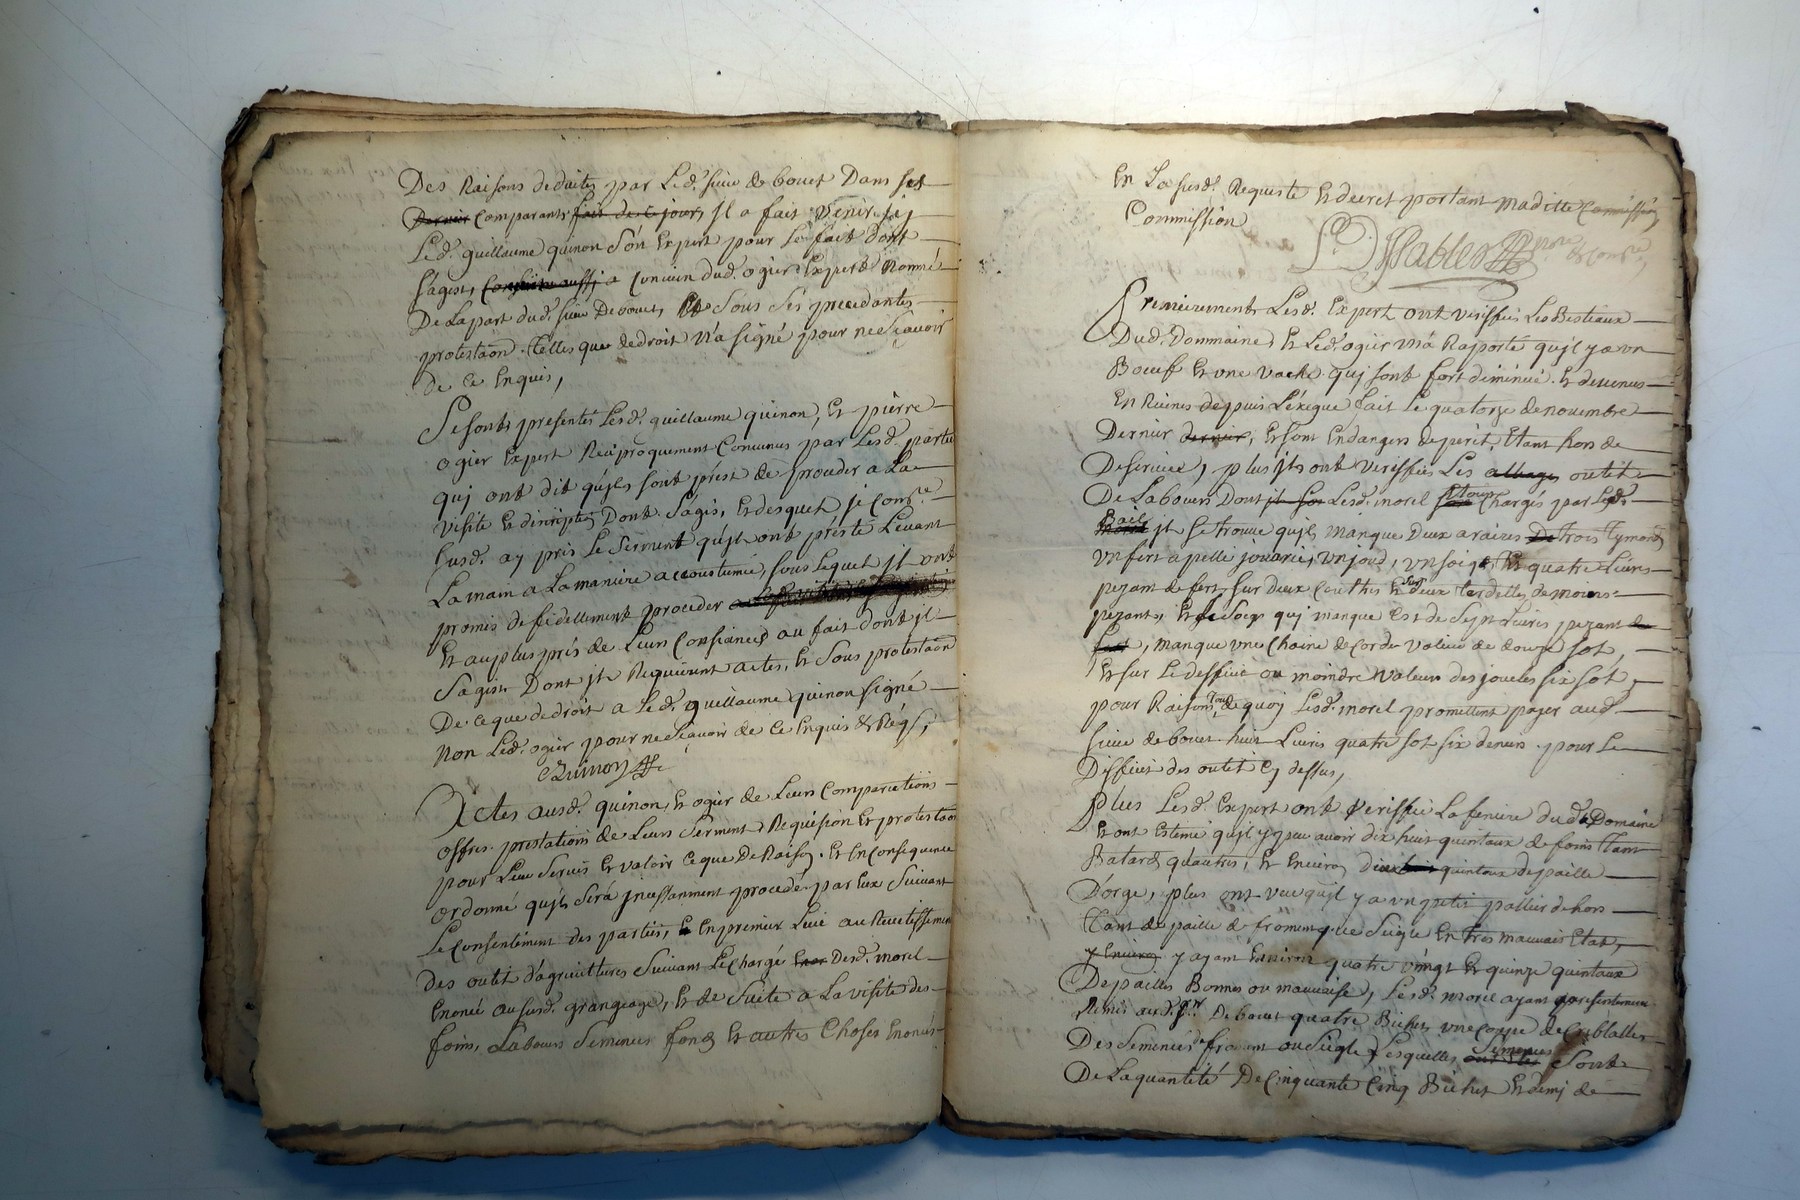 Des Raisons deduites par Led. sieur de bouet Dans ses
Dernier comparants fait de ce jour, Il a fait venir icj
Led. guillaume quinon son Expert pour Le fait dont
s'agist, convien dud. ogier Expert Nommé
De La part dud. sieur De bouet, Et sous ses precedantes
protestaõn telles que de droit n'a signé pour ne sçavoir
de ce Enquis,
Se sont presentés Lesd. guillaume quinon, Et pierre
ogier Expert Reciproquement Convenus par Lesd. partie
quj ont dit qu'jls sont prest de proceder a La
visite Et dont s'agis, Et desquels je Com.re
susd. ay pris Le Serment qu'jls ont presté Levant
La main a La maniere accoustumée, sous Lequel jls ont
promis de fidellement proceder
Et au plus prés de Leur Consiance au fait dont jl
s'agist Dont jls Requierent actes, Et sous protestaõn
De ce que de droit a Led. guillaume quinon signé
Non Led. ogier pour ne sçavoir de ce Enquis & Req.s,
Quinon
Actes ausd. quinon, Et ogier de Leurs Comparutions
offres prestations de Leurs Serment Requision Et protestaõn
pour Leur Servir Et valoir ce que De Raison. Et En Consequence
ordonné qu'jl Sera jncessamment procedé par Eux Suivant
Le Consentement des parties, En premier Lieu au
des outil d'agricultures Suivant Le Chargé Desd. morel
Enoncé au susd. grangeage, Et de Suite a La visite des
foins, Labours Semences fonds Et autres Choses Enoncés
En La susd. Requeste Et decret portant madite Commission
Commission
Premierement Lesd. Expert ont veriffiés Les Bestiaux
Dud. Dommaine Et Led. ogier m'a Raporté qu'jl y a un
Boeuf Et une vache quj sont fort diminué Et devenus
En Ruines depuis L'exegue fait Le quatorze de novembre
Dernier dernier, Et sont En dangers de perir, Etant hors de
De services, plus jls ont veriffiés Les outils
De Labours Dont Lesd. morel sont Chargés par Led.
Bail jl se trouve qu'jl manque Deux araires De trois tymonds
un fert apellé jouarié, un joud, un soig Et quatre Livres
pezant de fert sur deux Couthes Et sur deux tardilles de moins
pezants, Et Le soig quj manque est de Sept Livres pezant de
fert, manque une Chaine de Corde valeur de douze sol,
Et sur Le deffiuit ou moindre valeur des joucles six sol,
pour Raison de quoj Lesd. morel promettent payer aud.
sieur de bouet huit Livres quatre sol six deniers pour Le
Diffiuit des outil Cy dessus,
Plus Lesd. Expert ont veriffié La feniere dud. Domaine
Et ont Estimé qu'jl y peu avoir dix huit quintaux de foins tant
Batards qu'autres, Et Environ quintaux de paille
D'orge, plus ont vu qu'jl y a un petit pallier dehors
tant de paille de froment que Seigle En très mauvais Etat,
y Environ y ayant Environ quatre vingt Et quinze quintaux
De pailles Bonnes ou mauvaise, Lesd. morel ayant presentement
Remis aud. S.r De bouet quatre Bichet, une Coupe de Criblattes
Des Semences froment ou Seigle Lesquelles Semences Sont
De La quantité De Cinquante Cinq Bichet Et demj de